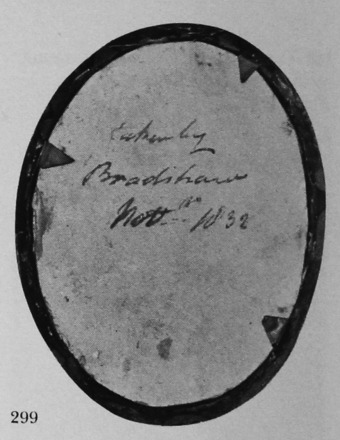 taken by
Bradshaw
Nottm 1832
299